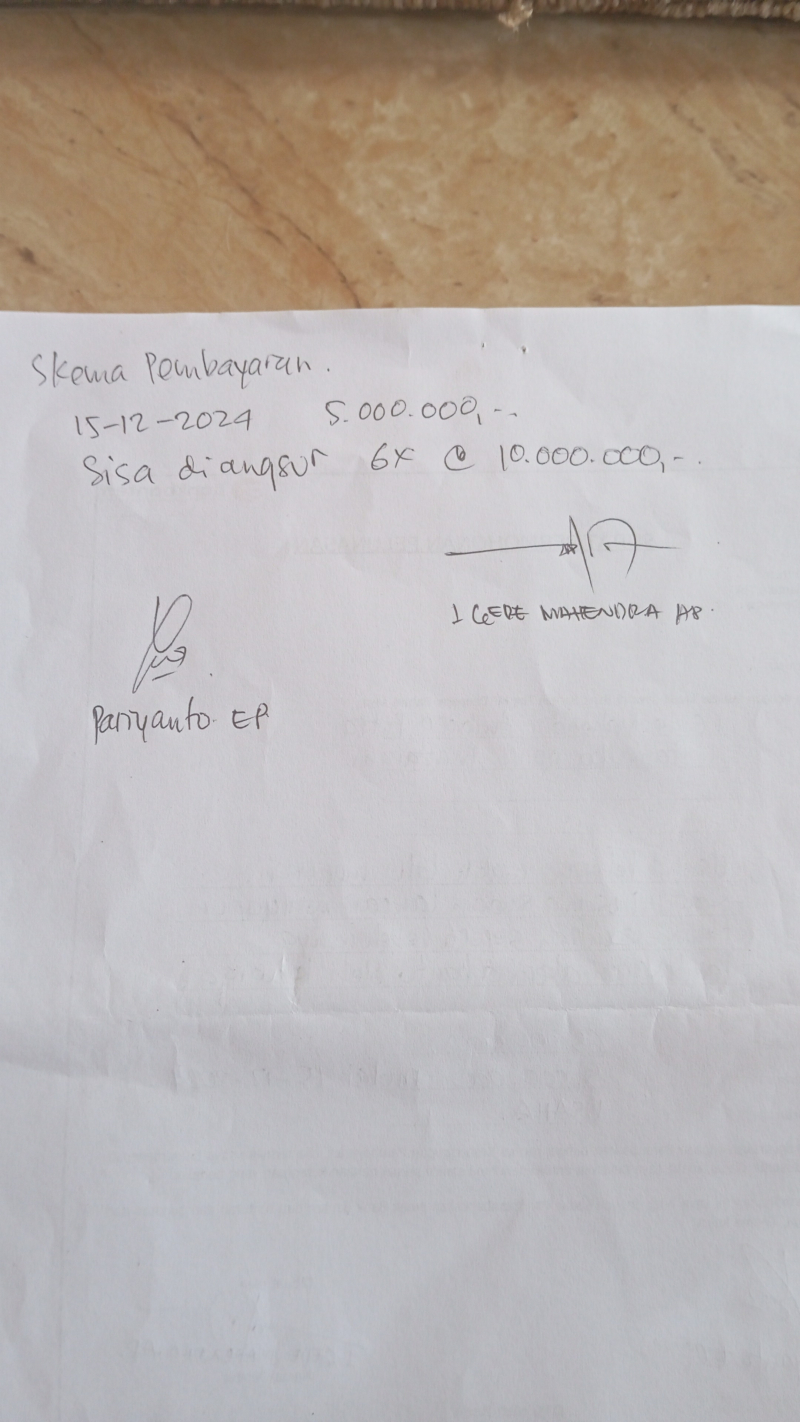 Skema Pembayaran.
15-12-2024 5.000.000,-.
Sisa diangsur 6x @ 10.000.000,-.
I GEDE MAHENDRA AB.
Pariyanto. EP